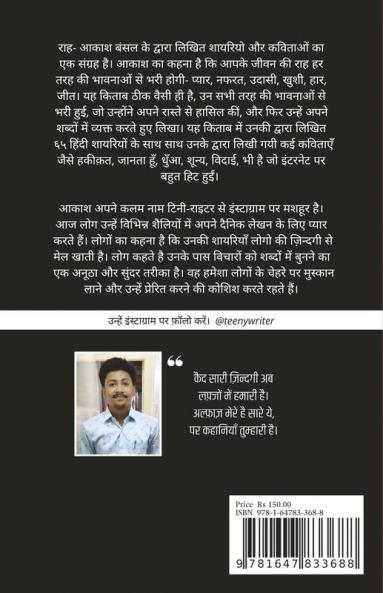 राह- आकाश बंसल के द्वारा लिखित शायरियो और कविताओं का
एक संग्रह है। आकाश का कहना है कि आपके जीवन की राह हर
तरह की भावनाओं से भरी होगी- प्यार, नफरत, उदासी, खुशी, हार,
जीत। यह किताब ठीक वैसी ही है, उन सभी तरह की भावनाओं से
भरी हुई, जो उन्होंने अपने रास्ते से हासिल कीं, और फिर उन्हें अपने
शब्दों में व्यक्त करते हुए लिखा। यह किताब में उनकी द्वारा लिखित
६५ हिंदी शायरियों के साथ साथ उनके द्वारा लिखी गयी कई कविताएँ
जैसे हकीक़त, जानता हूँ, धुँआ, शून्य, विदाई, भी है जो इंटरनेट पर
बहुत हिट हुईं।
आकाश अपने कलम नाम टिनी-राइटर से इंस्टाग्राम पर मशहूर है।
आज लोग उन्हें विभिन्न शैलियों में अपने दैनिक लेखन के लिए प्यार
करते हैं। लोगों का कहना है कि उनकी शायरियाँ लोगो की ज़िन्दगी से
मेल खाती है। लोग कहते है उनके पास विचारों को शब्दों में बुनने का
एक अनूठा और सुंदर तरीका है। वह हमेशा लोगों के चेहरे पर मुस्कान
लाने और उन्हें प्रेरित करने की कोशिश करते रहते हैं।
उन्हें इंस्टाग्राम पर फ़ॉलो करें। @teenywriter
“
कैद सारी ज़िन्दगी अब
लफ़्ज़ों में हमारी है।
अल्फ़ाज़ मेरे है सारे ये,
पर कहानियाँ तुम्हारी है।
Price Rs 150.00
ISBN 978-1-64783-368-8
9 781647 833688